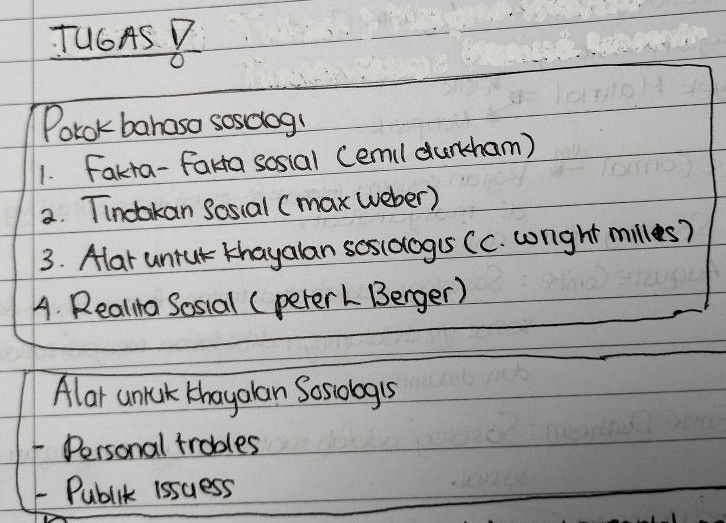 TUGAS !
Pokok bahasa sosiologi
1. Fakta-fakta sosial (emil durkham)
2. Tindakan Sosial (max weber)
3. Alat untuk khayalan sosiologis (c. wright milles)
4. Realita Sosial (peter L Berger)
Alat untuk khayalan Sosiologis
- Personal trobles
- Publik Issuess